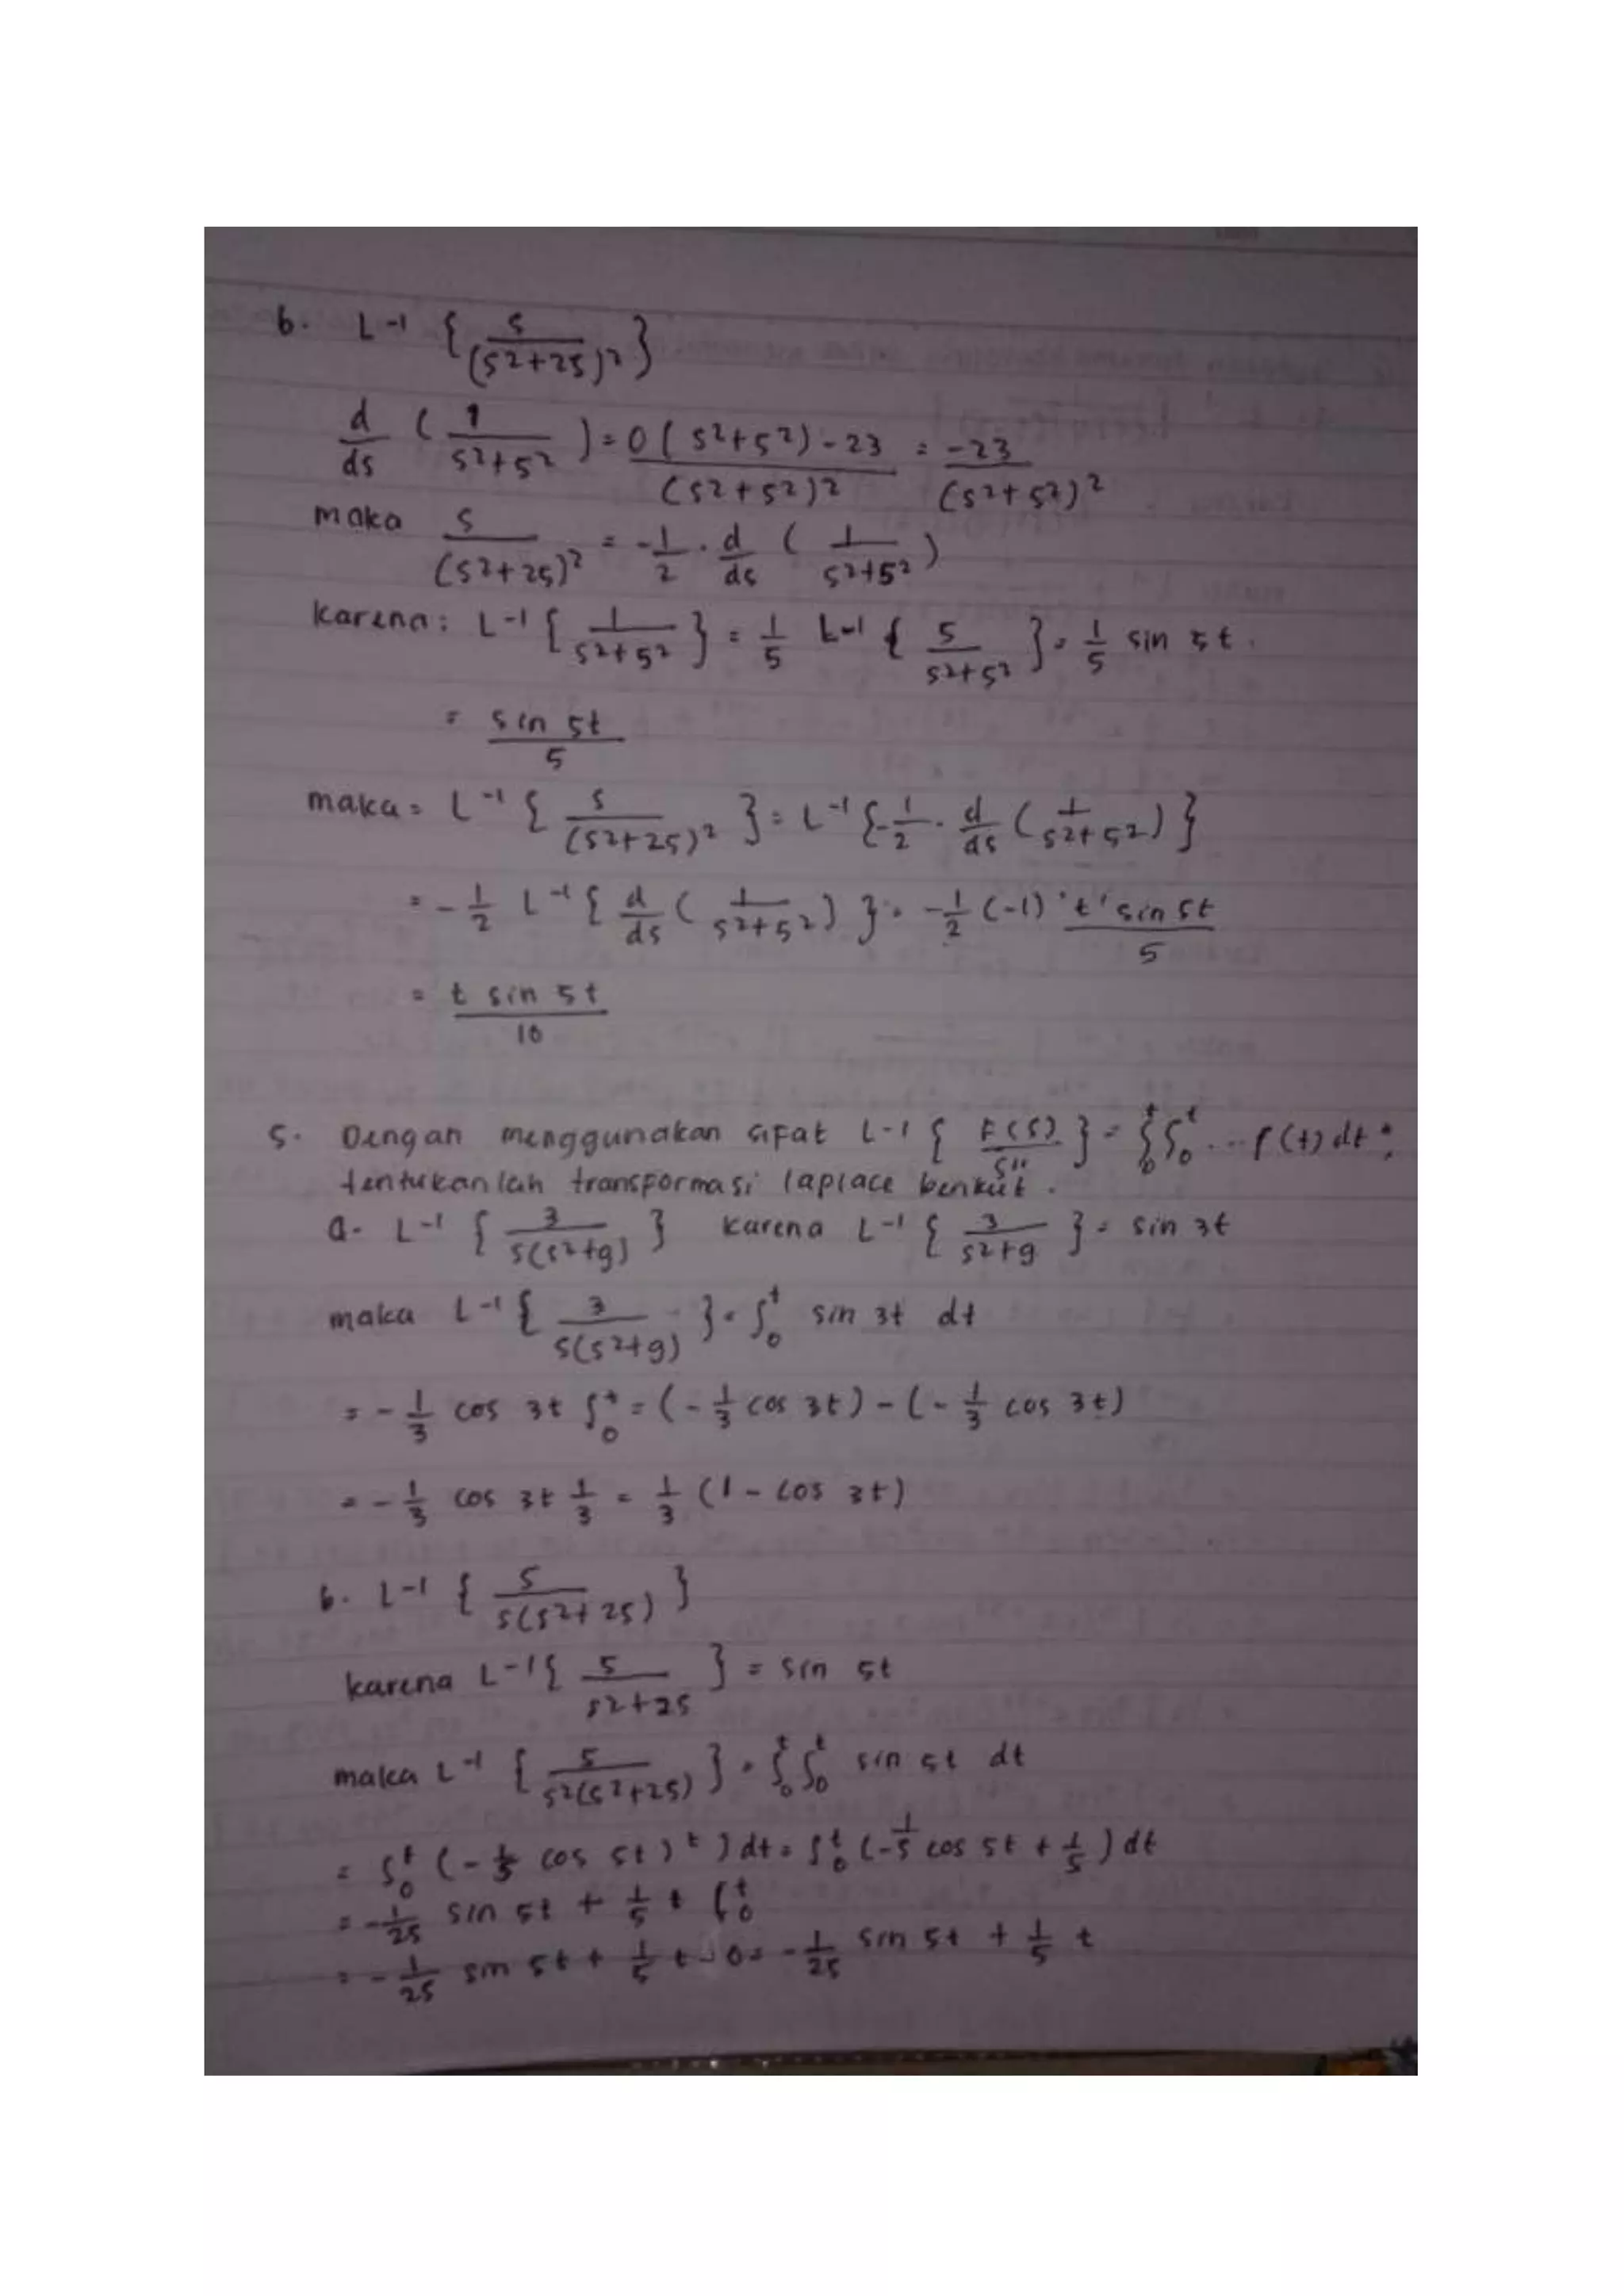 b. L-1 { s / (s2+25)2 }
d/ds ( 1 / s2+52 ) = 0 ( s2+52) - 23 / (s2+52)2 = -23 / (s2+52)2
maka s / (s2+25)2 = -1/2 . d/ds ( 1 / s2+52 )
karena : L-1 { 1 / s2+52 } = 1/5 L-1 { 5 / s2+52 } = 1/5 sin 5t.
= sin 5t / 5
maka = L-1 { s / (s2+25)2 } = L-1 {-1/2 . d/ds ( 1 / s2+52 ) }
= -1/2 L-1 { d/ds ( 1 / s2+52 ) } = -1/2 (-1)' t' sin 5t / 5
= t sin 5t / 10
5. Dengan menggunakan sifat L-1 { F(s) / sn } = ∫0t ∫0t ... f(t) dt ;
tentukanlah transformasi laplace berikut .
a. L-1 { 3 / s(s2+9) } karena L-1 { 3 / s2+9 } = sin 3t
maka L-1 { 3 / s(s2+9) } = ∫0t sin 3t dt
= -1/3 cos 3t ∫0t = (-1/3 cos 3t) - (-1/3 cos 3t)
= -1/3 cos 3t 1/3 = 1/3 (1 - cos 3t)
b. L-1 { 5 / s(s2+25) }
karena L-1 { 5 / s2+25 } = sin 5t
maka L-1 { 5 / s2(s2+25) } = ∫0t ∫0t sin 5t dt
= ∫0t (-1/5 cos 5t ) t ) dt = ∫0t (-1/5 cos 5t + 1/5 ) dt
= -1/25 sin 5t + 1/5 t ∫0t
= -1/25 sin 5t + 1/5 t - 0 = -1/25 sin 5t + 1/5 t